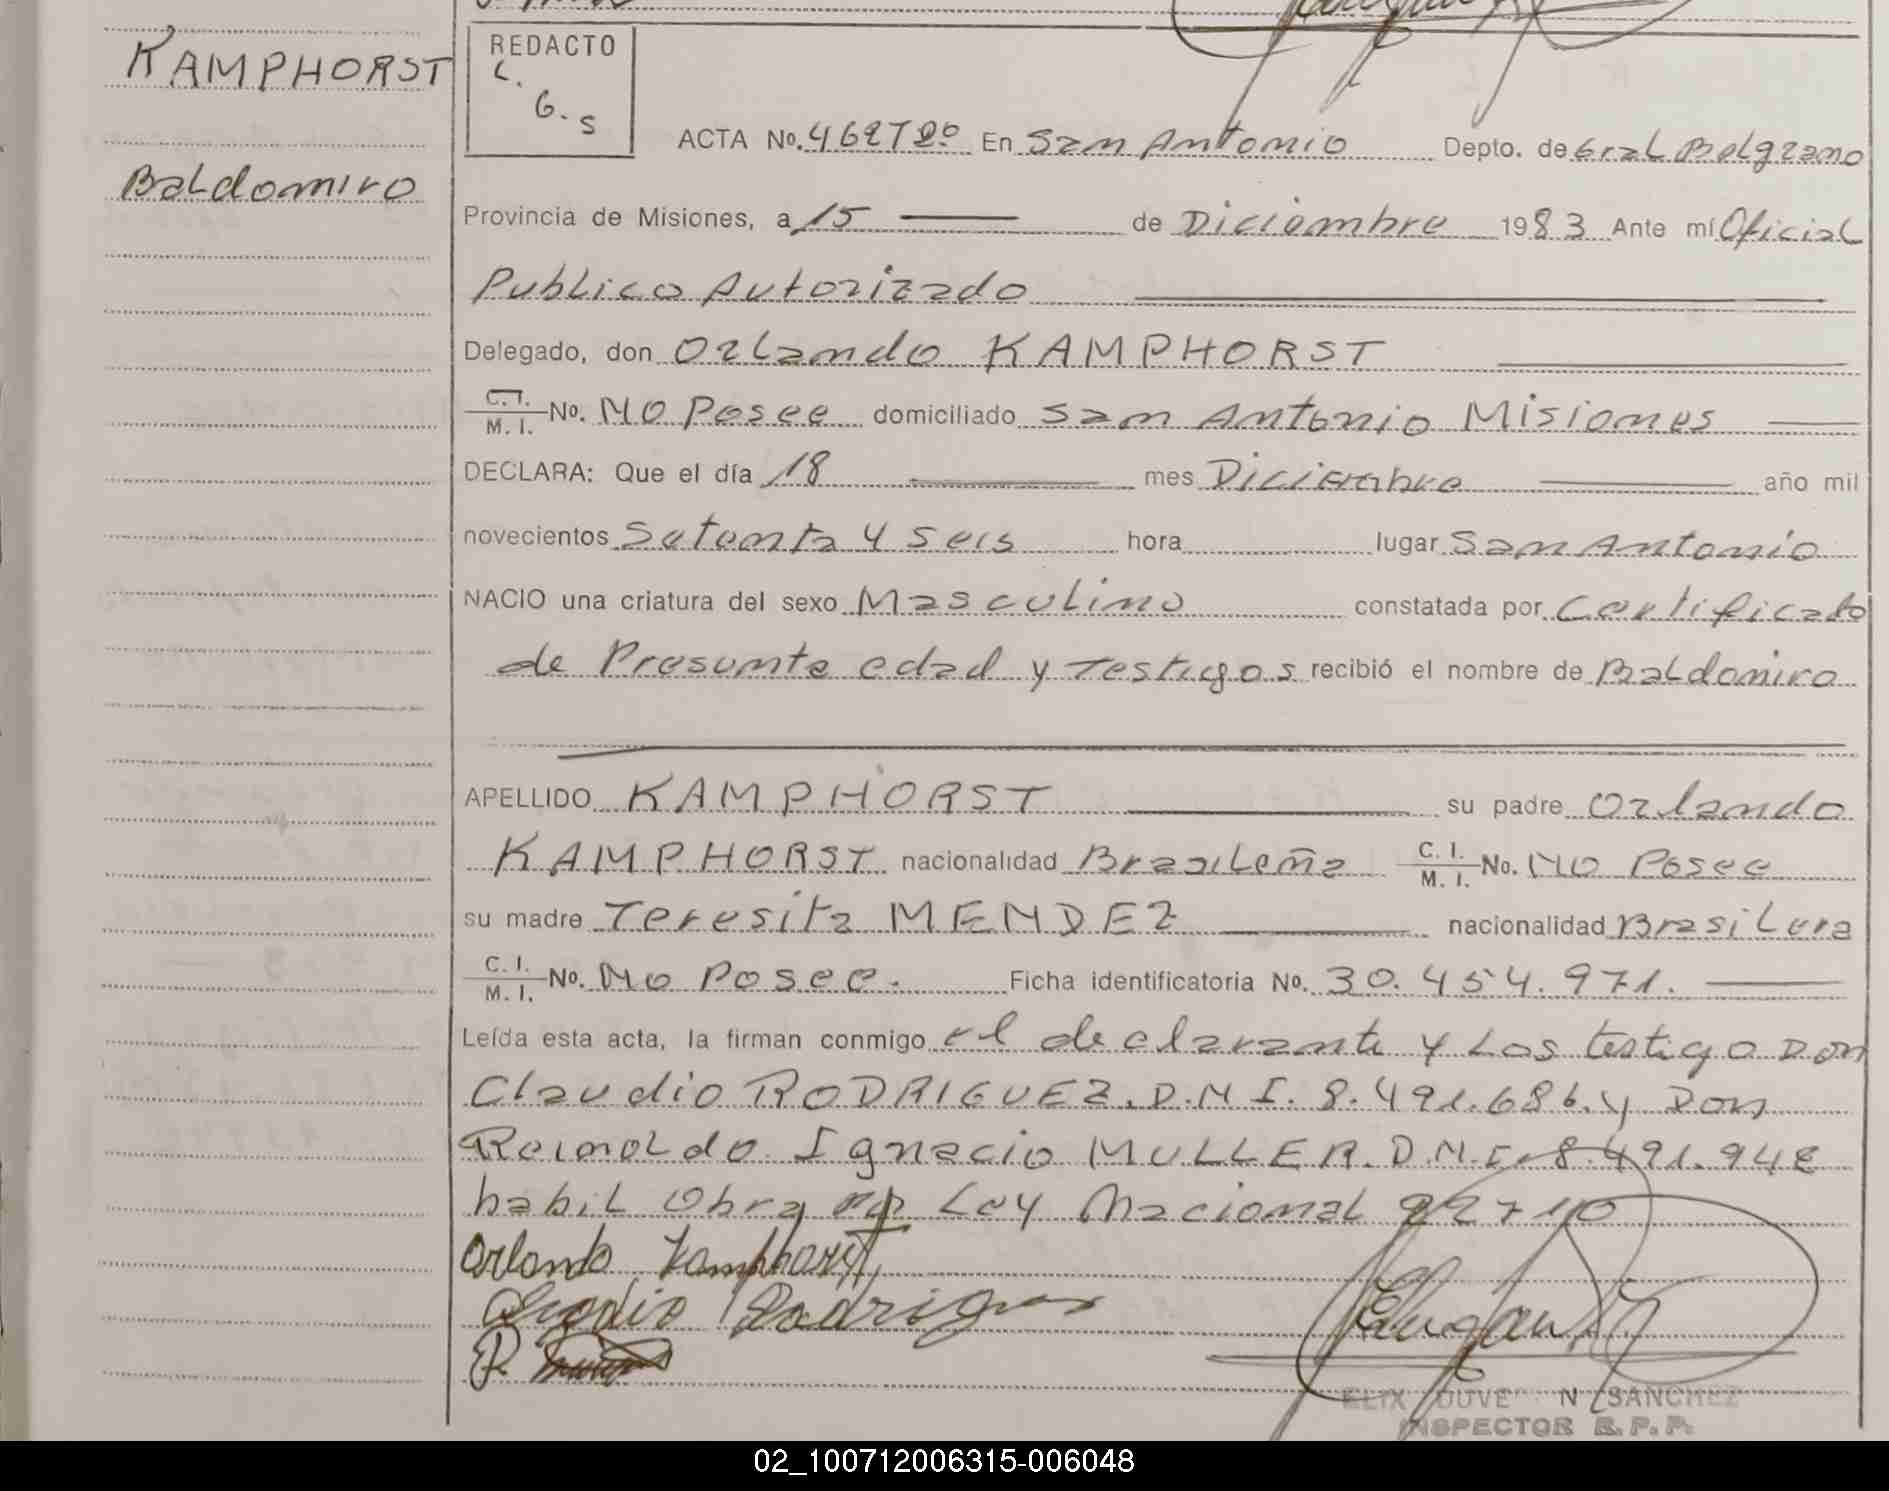 KAMPHORST
Baldomiro
REDACTO
L. G. S
ACTA No. 462T2º En San Antonio Depto. de Gral Belgrano
Provincia de Misiones, a 15 de Diciembre 1983 Ante mí Oficial
Publico Autorizado
Delegado, don Orlando KAMPHORST
C.I. M.I. No. NO Posee domiciliado San Antonio Misiones
DECLARA: Que el día 18 mes Diciembre año mil
novecientos Setenta y Seis hora lugar San Antonio
NACIO una criatura del sexo Masculino constatada por Certificado
de Presunta edad y Testigos recibió el nombre de Baldomiro
APELLIDO KAMPHORST su padre Orlando
KAMPHORST nacionalidad Brasileña C.I. M.I. No. NO Posee
su madre Teresita MENDEZ nacionalidad Brasilera
C.I. M.I. No. No Posee. Ficha identificatoria No. 30.454.971.
Leída esta acta, la firman conmigo el declarante y Los testigo Don
Claudio RODRIGUEZ. D.N.I. 8.491.686. y Don
Reinoldo Ignacio MULLER. D.N.I. 8.491.948
habil Obra en Ley Nacional 22710
Orlando Kamphorst
Rodrigues
N SANCHEZ
INSPECTOR R.P.P.
02_100712006315-006048